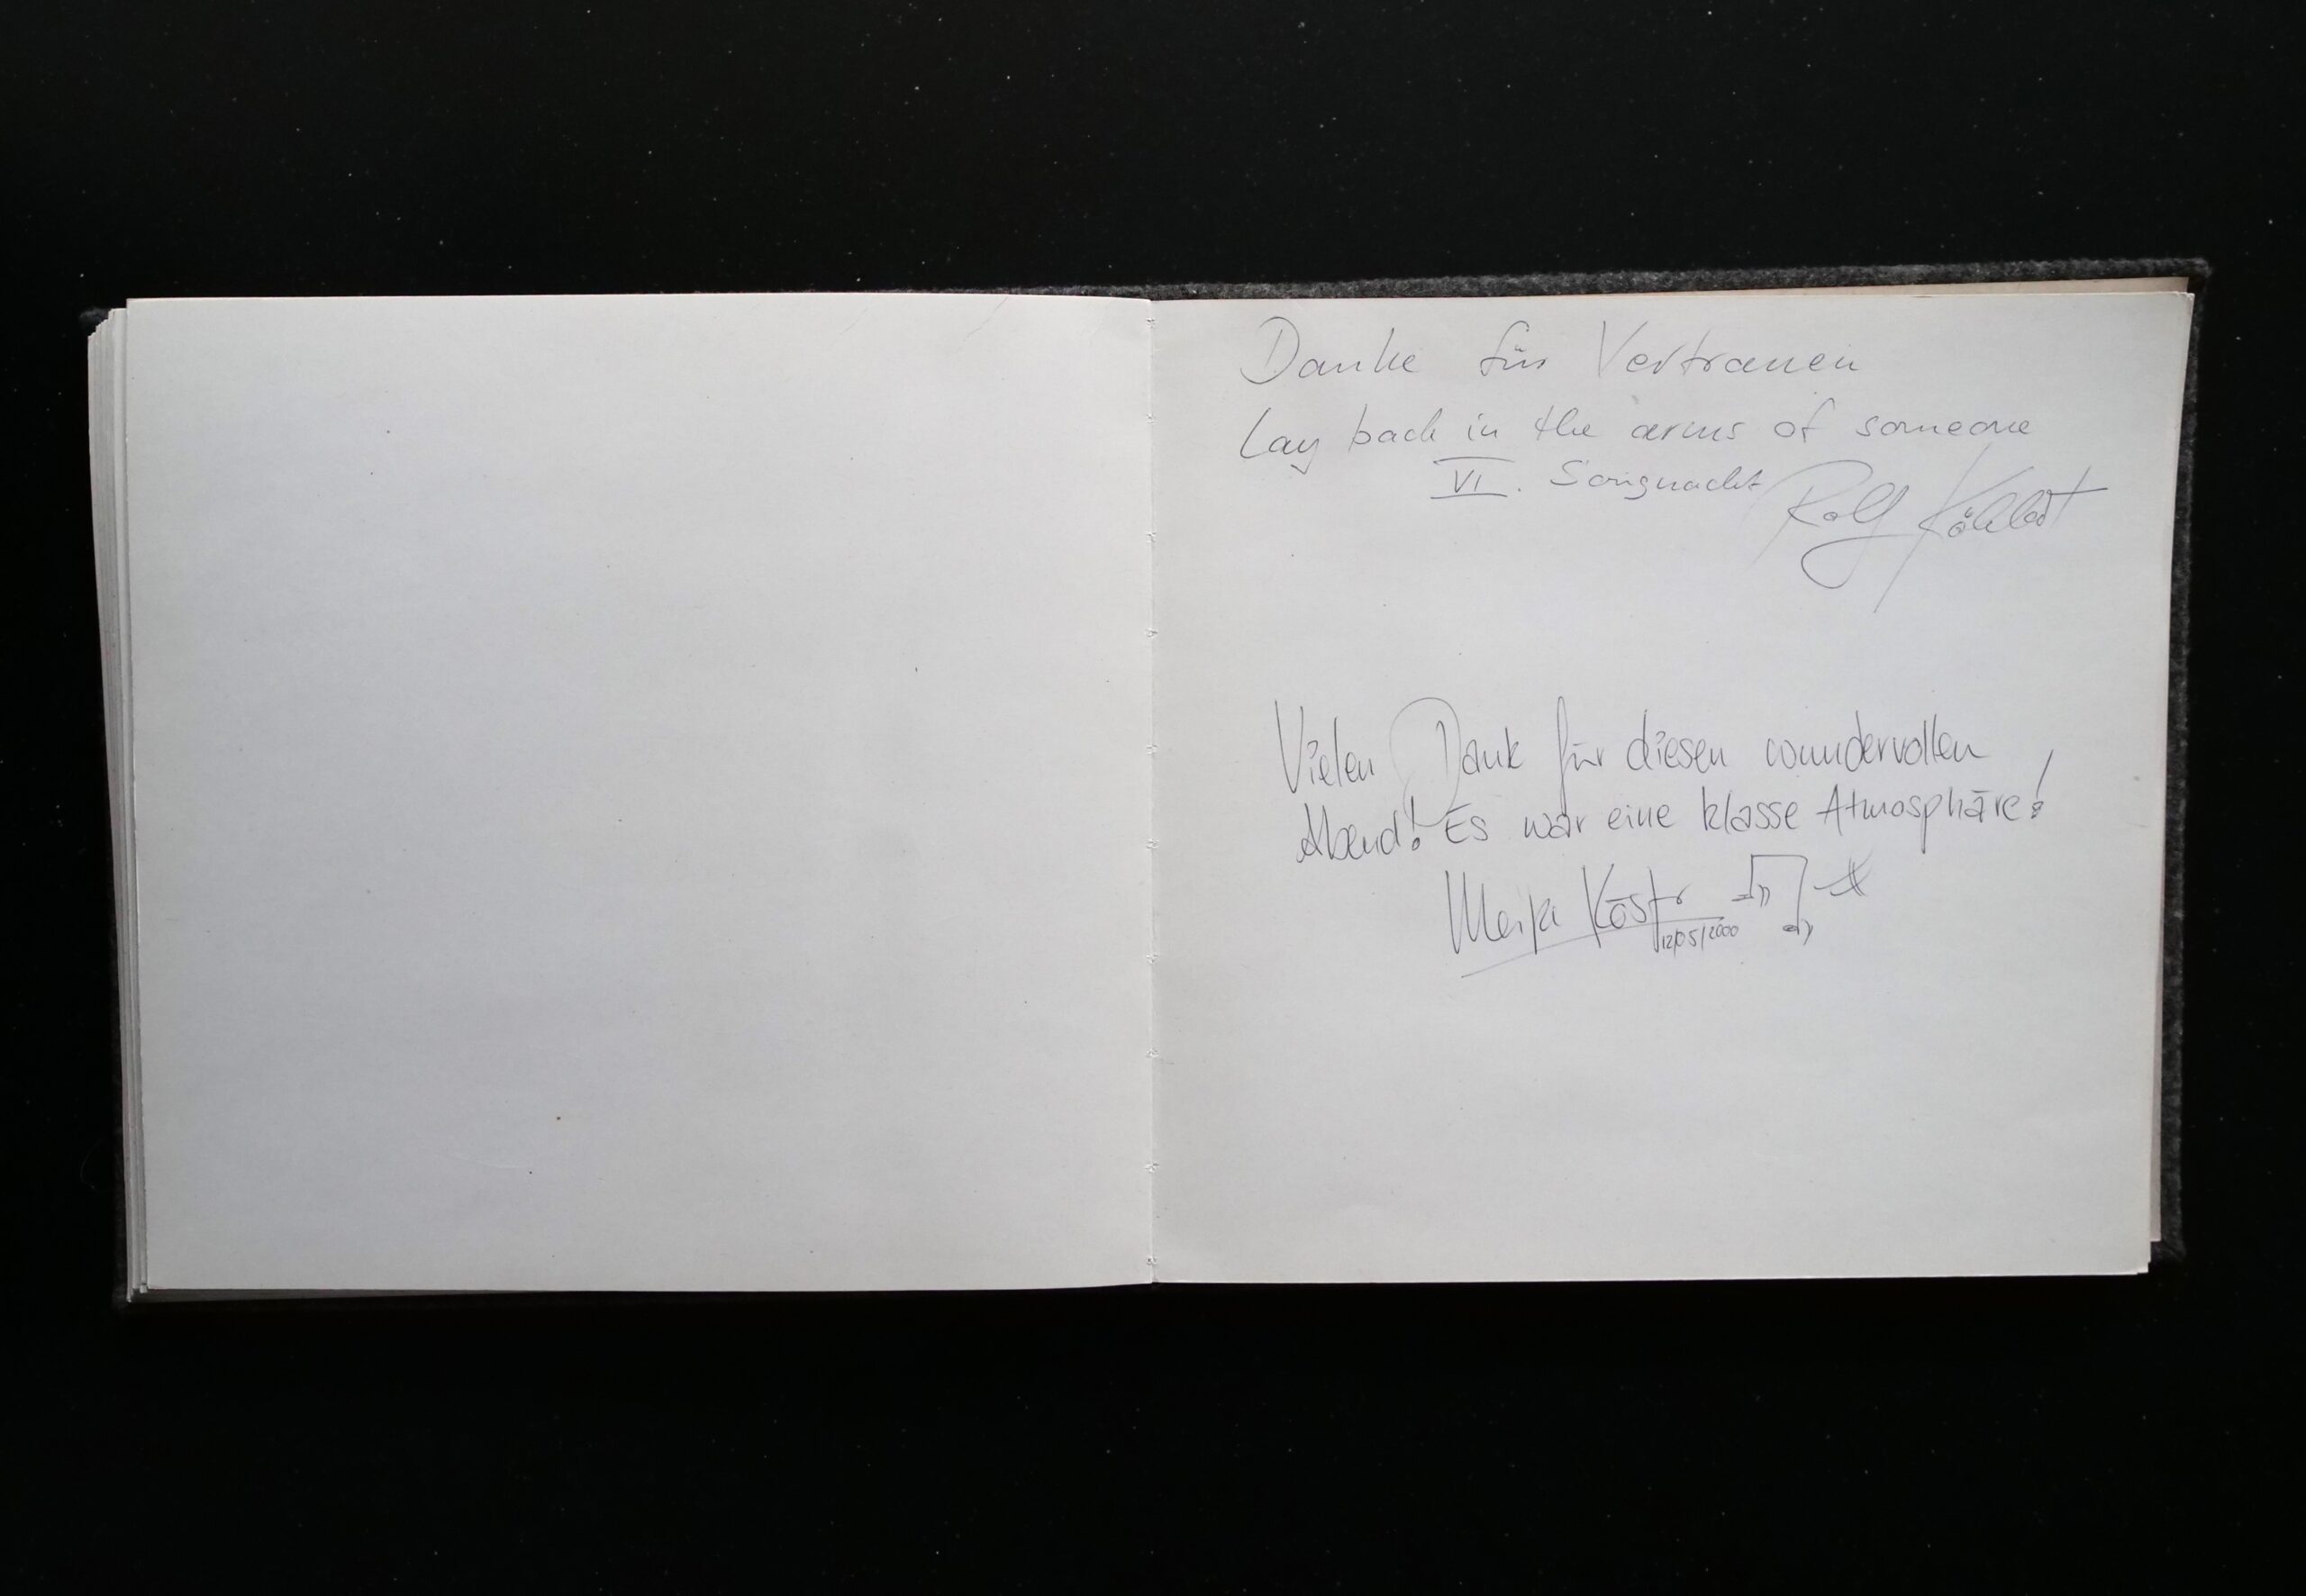 Danke für Vertrauen
Lay back in the arms of someone
VI. Songnacht Rolf
Vielen Dank für diesen wundervollen
Abend! Es war eine klasse Atmosphäre!
12/05/2000